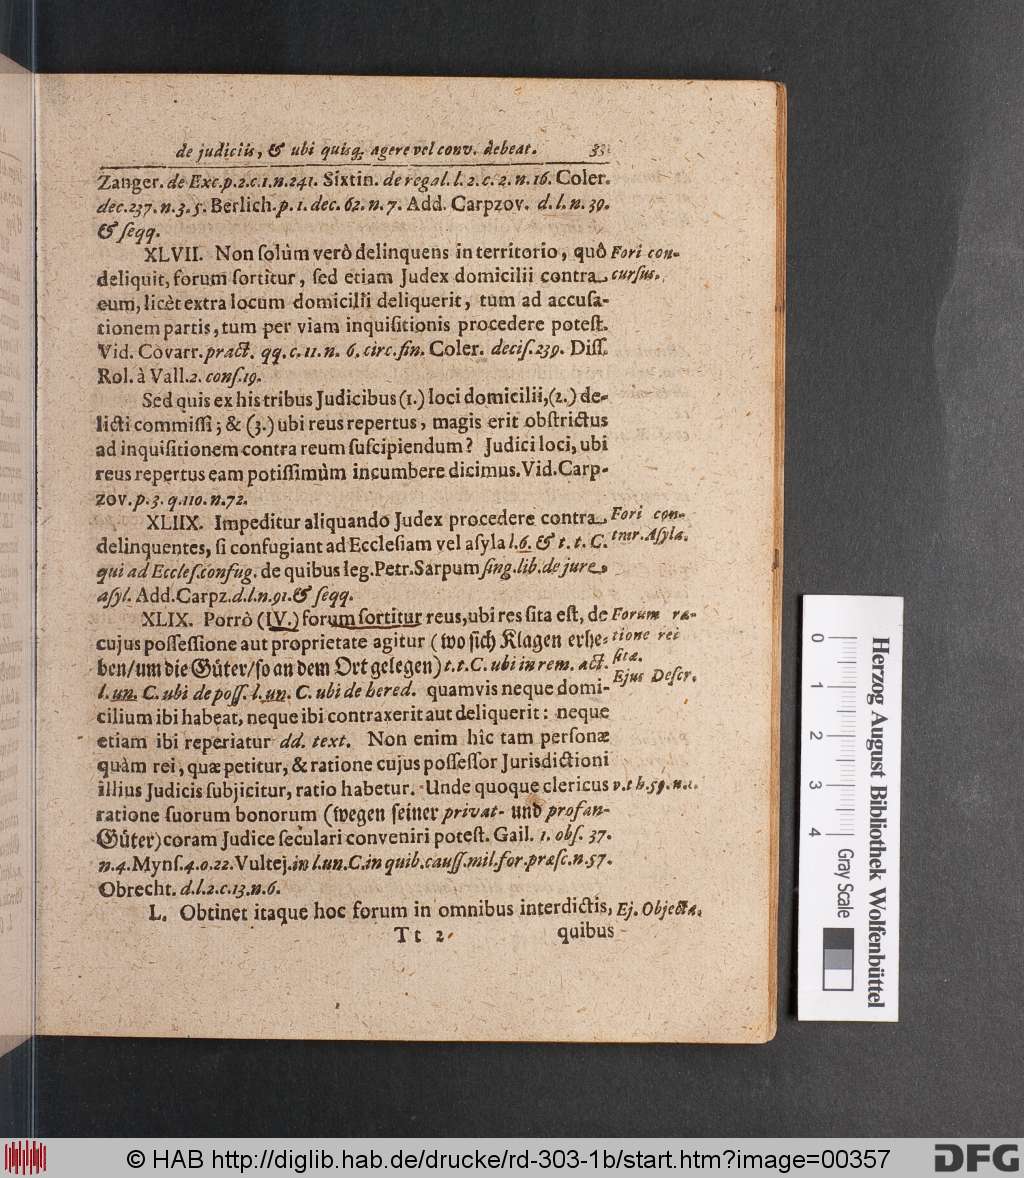 de judiciis, & ubi quisq; agere vel conv. debeat.
Zanger. de Exc. p. 2. c. 1. n. 241. Sixtin. de regal. l. 2. c. 2. n. 16. Coler.
dec. 237. n. 3. 5. Berlich. p. 1. dec. 62. n. 7. Add. Carpzov. d. l. n. 39.
& ſeqq.
XLVII. Non ſolùm verò delinquens in territorio, quô
Fori con-
deliquit, forum ſortitur, ſed etiam Judex domicilii contra
curſus.
eum, licèt extra locum domicilii deliquerit, tum ad accuſa-
tionem partis, tum per viam inquiſitionis procedere poteſt.
Vid. Covarr. pract. qq. c. 11. n. 6. circ. fin. Coler. deciſ. 239. Diſſ.
Rol. à Vall. 2. conſ. 19.
Sed quis ex his tribus Judicibus (1.) loci domicilii, (2.) de-
licti commiſſi; & (3.) ubi reus repertus, magis erit obſtrictus
ad inquiſitionem contra reum ſuſcipiendum? Judici loci, ubi
reus repertus eam potiſſimùm incumbere dicimus. Vid. Carp-
zov. p. 3. q. 110. n. 72.
XLIIX. Impeditur aliquando Judex procedere contra
Fori con-
delinquentes, ſi confugiant ad Eccleſiam vel aſyla l. 6. & t. t. C.
tmr. Aſyla.
qui ad Eccleſ. confug. de quibus leg. Petr. Sarpum ſing. lib. de jure
aſyl. Add. Carpz. d. l. n. 91. & ſeqq.
XLIX. Porrò (IV.) forum ſortitur reus, ubi res ſita eſt, de
Forum ra-
cujus poſſeſſione aut proprietate agitur (wo ſich Klagen erhe-
tione rei
ben/ um die Güter/ ſo an dem Ort gelegen) t. t. C. ubi in rem. act.
ſitæ.
Ejus Deſcr.
l. un. C. ubi de poſſ. l. un. C. ubi de hered. quamvis neque domi-
cilium ibi habeat, neque ibi contraxerit aut deliquerit: neque
etiam ibi reperiatur dd. text. Non enim hîc tam perſonæ
quàm rei, quæ petitur, & ratione cujus poſſeſſor Jurisdictioni
illius Judicis ſubjicitur, ratio habetur. Unde quoque clericus
v. th. 59. n. 1.
ratione ſuorum bonorum (wegen ſeiner privat- und profan-
Güter) coram Judice ſeculari conveniri poteſt. Gail. 1. obſ. 37.
n. 4. Mynſ. 4. o. 22. Vultej. in l. un. C. in quib. cauſſ. mil. for. præſc. n. 57.
Obrecht. d. l. 2. c. 13. n. 6.
L. Obtinet itaque hoc forum in omnibus interdictis,
Ej. Objecta.
Tt 2
quibus
0 1 2 3 4
Gray Scale
Herzog August Bibliothek Wolfenbüttel
© HAB http://diglib.hab.de/drucke/rd-303-1b/start.htm?image=00357
DFG